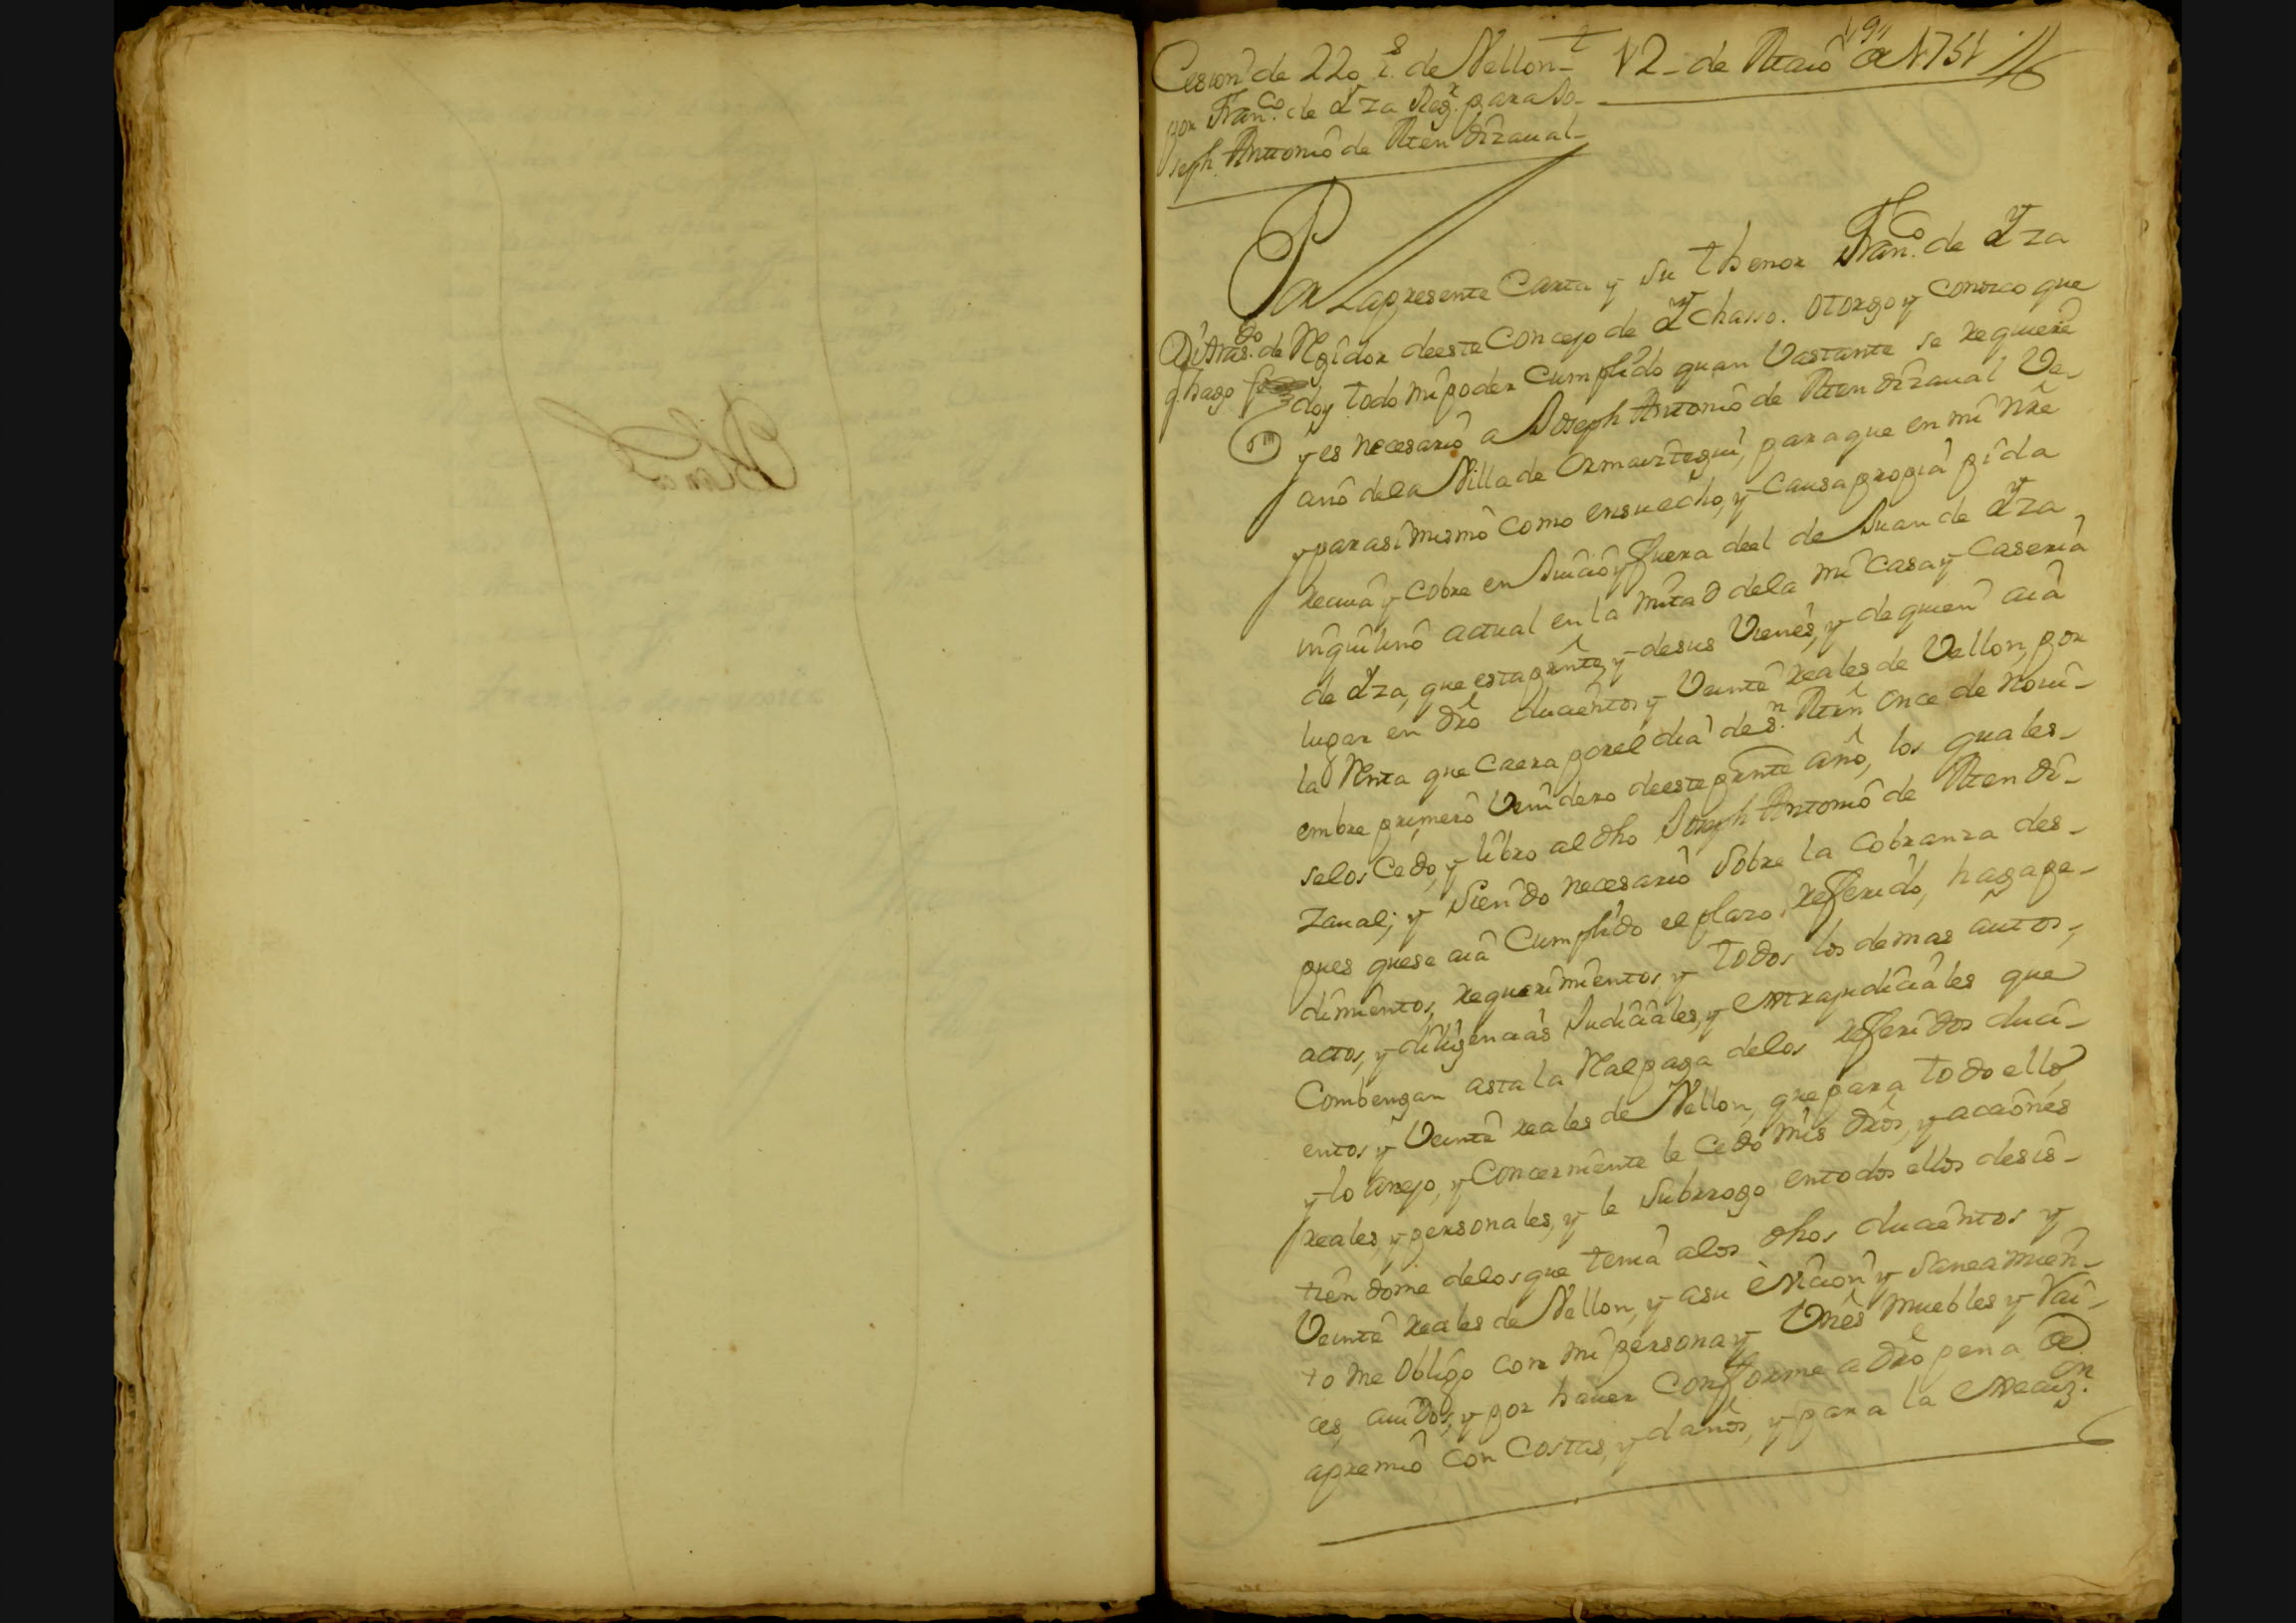 Blanco
Cesion de 220 rs. de Vellon
por Franco. de Yza Regr. para Jo-
seph Antonio de Mendizaual
12 de Maio de 1751
19
Por la presente Carta y su thenor Franco. de Yza
Regidor de este Concejo de Ychasso. otorgo y conozco que
doy todo mi poder Cumplido quan Vastante se requiere
y es necesario a Joseph Antonio de Mendizaual Ve-
cino de la Villa de Ormaiztegui, para que en mi nre
y para si mismo como en su echo, y Causa propia pida
reciua y Cobre en Juicio y fuera de el de Juan de Yza
inquilino actual en la mitad de la mi Casa y Caseria
de Yza, que esta prnte, y de sus Vienes, y de quien aia
lugar en dro ducientos y Veinte reales de Vellon, por
la Renta que Caera por el dia de Sn. Mrn once de Novi-
embre primero Venidero de este prnte año, los quales
se los Cedo, y libro al dho Joseph Antonio de Mendi-
zaual; y siendo necesario sobre la Cobranza des-
pues que se aia Cumplido el plazo referido, haga pe-
dimientos, requerimientos, y todos los demas autos,
actos, y diligencias Judiciales, y extrajudiciales que
Combengan asta la Real paga de los referidos duci-
entos y Veinte reales de Vellon, que para todo ello
y lo anejo, y Concerniente le Cedo mis dros, y acciones
reales, y personales, y le Subrrogo en todos ellos desis-
tiendome de los que tenia a los dhos ducientos y
Veinte reales de Vellon, y a su evicion y Saneamien-
to me obligo con mi persona y Vnes muebles y Rai-
ces, auidos, y por hauer Conforme a dro pena de
apremio con Costas, y daños, y para la execuzn.
Ditras. do de
q. hago